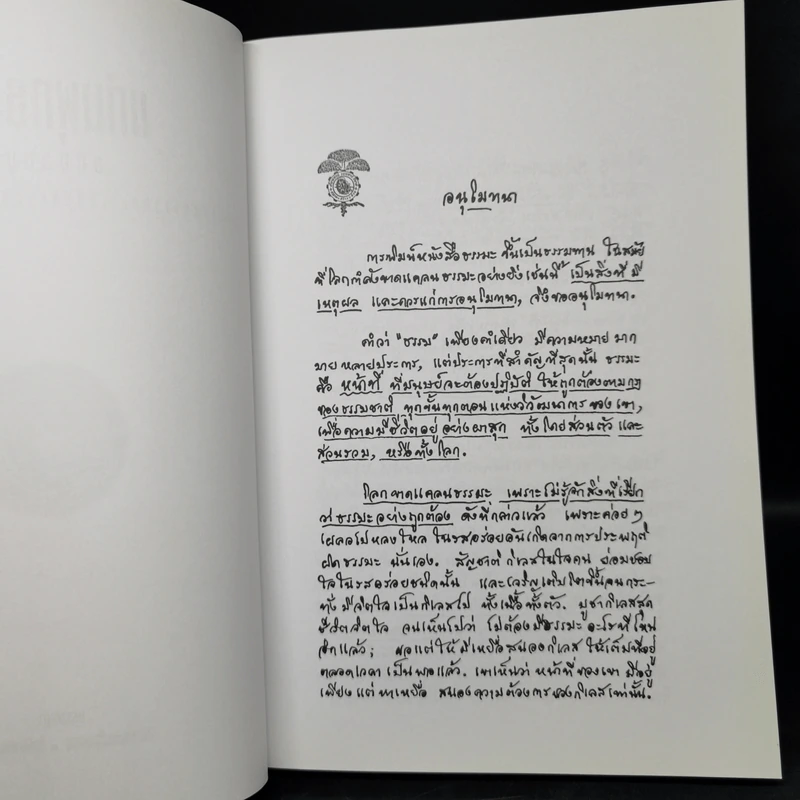 อนุโมทนา
การพิมพ์หนังสือธรรมะ ขึ้นเป็นธรรมทาน ในสมัย
ที่โลกกำลังขาดแคลนธรรมะอย่างยิ่งเช่นนี้ เป็นสิ่งที่ มี
เหตุผล และควรแก่การอนุโมทนา, จึงขออนุโมทนา.
คำว่า "ธรรม" เพียงคำเดียว มีความหมาย มาก
มาย หลายประการ, แต่ประการที่สำคัญที่สุดนั้น ธรรมะ
คือ หน้าที่ ที่มนุษย์จะต้องปฏิบัติ ให้ถูกต้องตามกฎ
ของธรรมชาติ ทุกขั้นทุกตอนแห่งวิวัฒนาการ ของเขา,
เพื่อความมีชีวิตอยู่ อย่างผาสุก ทั้งโดยส่วนตัว และ
ส่วนรวม, หรือทั้งโลก.
โลกขาดแคลนธรรมะ เพราะไม่รู้จักสิ่งที่เรียก
ว่าธรรมะอย่างถูกต้อง ดังที่กล่าวแล้ว เพราะค่อยๆ
เผลอไปหลงใหล ในรสอร่อยอันเกิดจากการประพฤติ
ผิดธรรมะ นั่นเอง. สัญชาติกิเลสในใจคน ย่อมชอบ
ใจในรสอร่อยชนิดนั้น และเจริญเติบโตขึ้นจนกระ-
ทั่ง มีจิตใจเป็นกิเลสไป ทั้งเนื้อทั้งตัว. บูชากิเลสสุด
ชีวิตจิตใจ จนเห็นไปว่า ไม่ต้องมีธรรมะ อะไรที่ไหน
อีกแล้ว; ขอแต่ให้มีเหยื่อสนองกิเลส ให้เต็มที่อยู่
ตลอดเวลา เป็นพอแล้ว. เขาเห็นว่า หน้าที่ของเขา มีอยู่
เพียงแต่ หาเหยื่อ สนองความต้องการ ของกิเลสเท่านั้น.